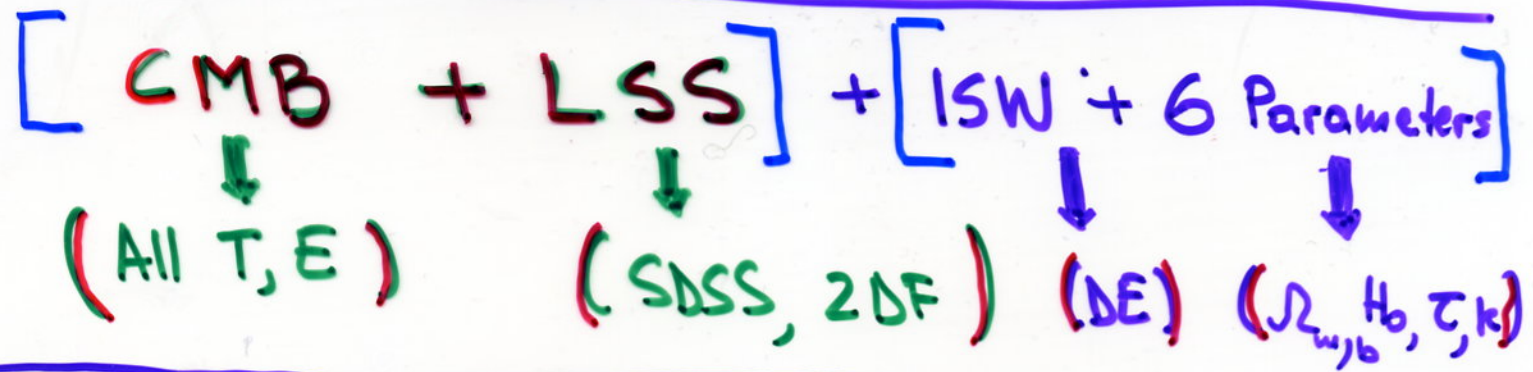 [ CMB + LSS ] + [ ISW + 6 Parameters ]
(All T, E) (SDSS, 2DF) (DE) (Ω_m,b, H₀, τ, k)